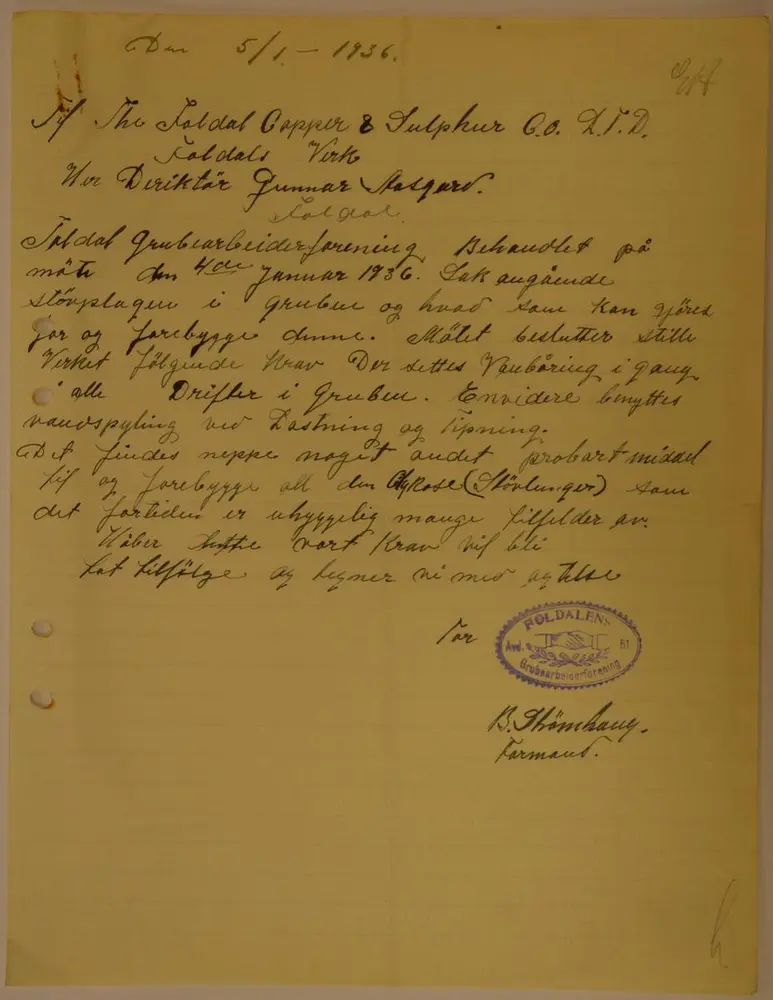 Den 5/1 – 1936.
Til The Foldal Copper & Sulphur C.O. L.T.D.
Foldals Verk
Her Deriktör Gunnar Aasgard.
Foldal.
Foldal Grubearbeiderforening Behandlet på
möte den 4de Januar 1936. Sak angående
stövplagen i gruben og hvad som kan gjöres
for og forebygge denne. Mötet beslutter stille
Verket følgende Krav Der settes Vanboring i gang
i alle Drifter i Gruben. Envidere benyttes
vandspyling ved Lastning og Tipning.
Det findes neppe noget andet probart middel
til og forebygge all den (Stövlunger) som
det fortiden er uhyggelig mange tilfelder av.
Håber dette vort Krav vil bli
tat tilfölge og tegner vi med agtelse
For
FOLDALENS
Avd. 61
Grubearbeiderforening
B. Strömhaug.
Formand.